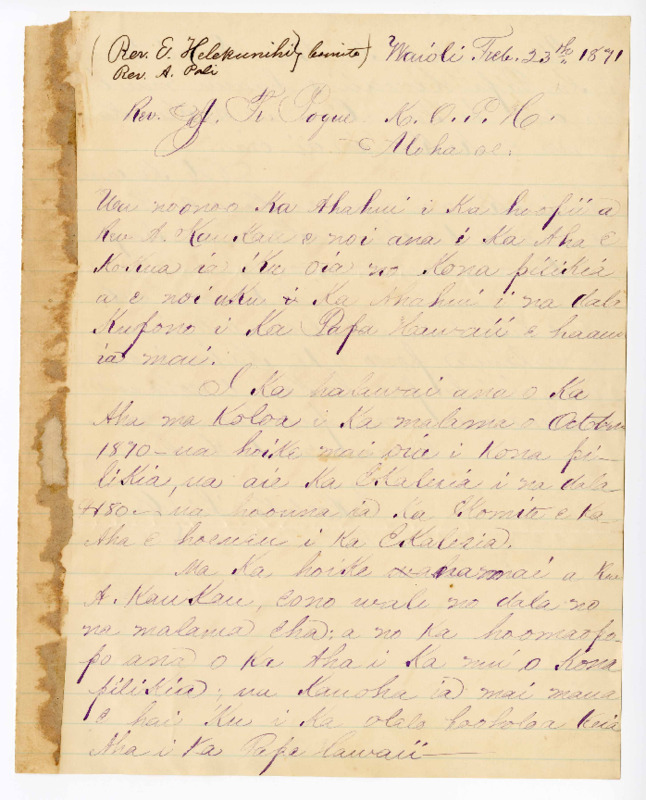 (Rev. E. Helekunihi } komite) Waioli Feb. 23rd 1871
Rev. A. Pali
Rev. J. F. Pogue K. O. P. H.
Aloha oe.
Ua noonoo Ka Ahahui i Ka hoopii a
Rev A. Kaukau e noi ana i Ka Aha e
Kokua ia Ku oia no Kona pilikia
a e noi aku i Ka Ahahui i na dala
Kupono i Ka Papa Hawaii e haawi
ia mai.
I Ka halawai ana o Ka
Aha ma Koloa i Ka malama o October
1870 - ua hoike mai oia i Kona pi-
likia, ua aie Ka Ekalesia i na dala
$150 - ua hoouna ia Ka Komite e Ka
Aha e hoeueu i Ka Ekalesia.
Ma Ka hoike ana mai a Rev
A. Kaukau, eono wale no dala no
na malama eha; a no Ka hoomaopo-
po ana o Ka Aha i Ka nui o Kona
pilikia; ua Kauoha ia mai maua
e hai Ku i Ka olelo hooholoa Keia
Aha i Ka Papa Hawaii -